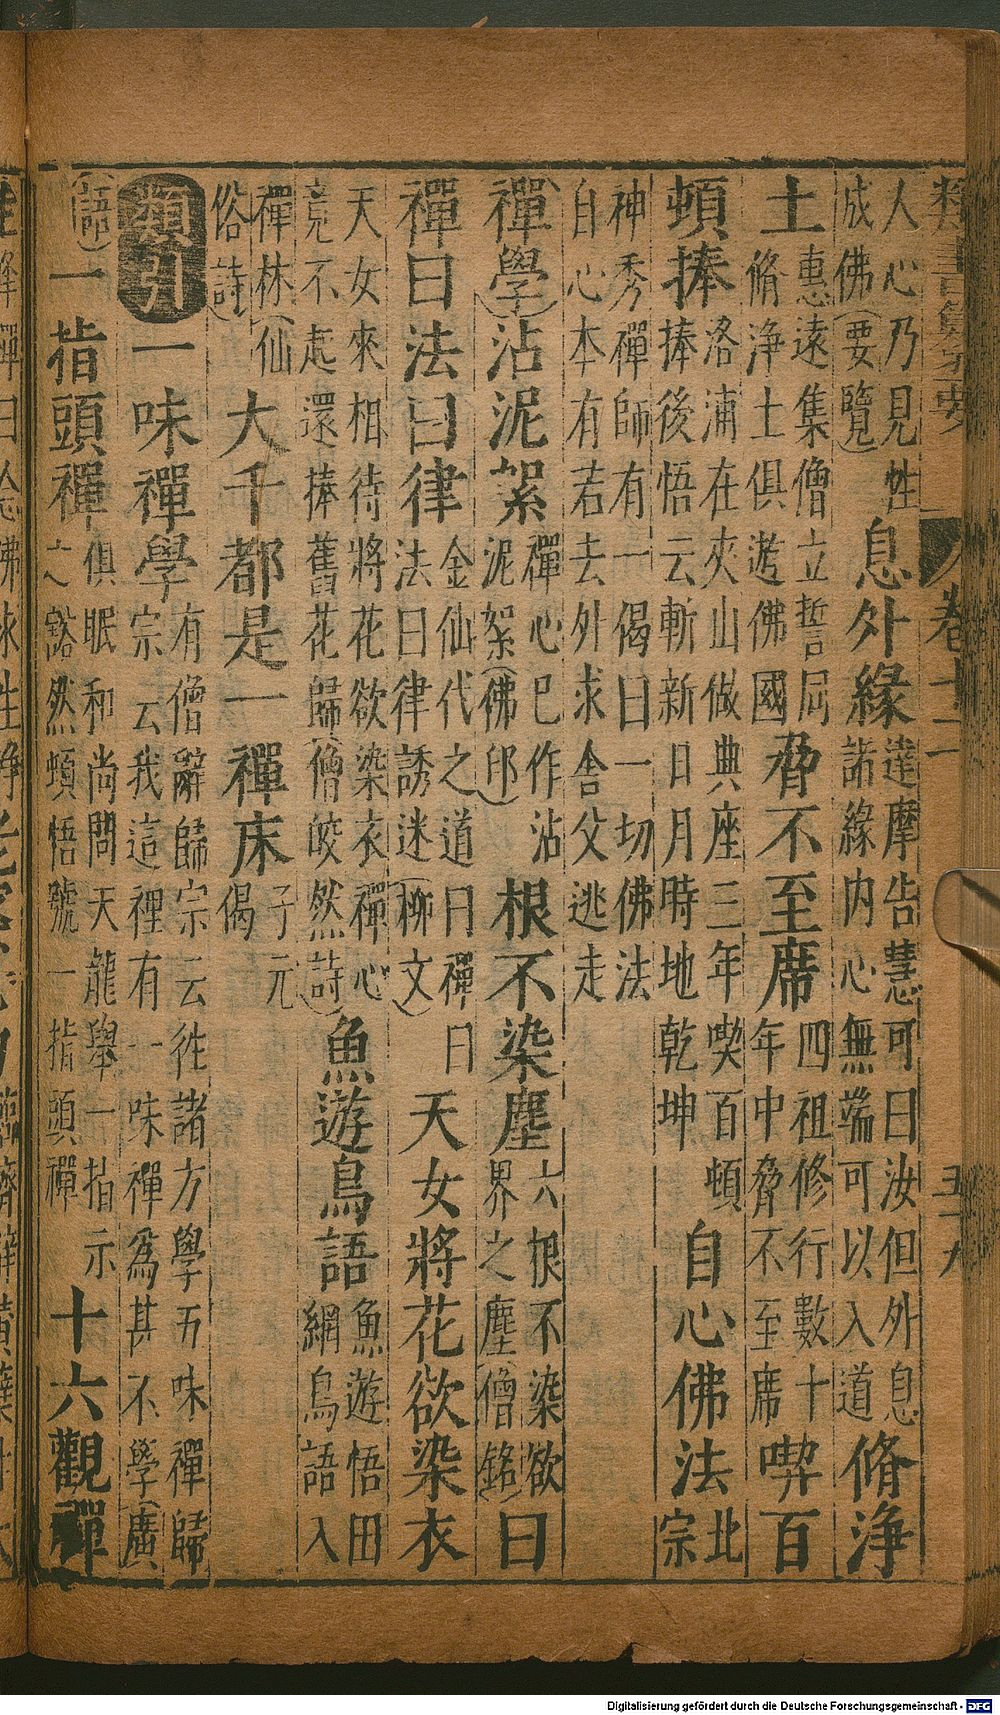 類書纂要 卷十二 五十九
人心乃見性成佛(要覽)息外緣達摩告慧可曰汝但外息諸緣内心無端可以入道脩浄
土惠遠集僧立誓居脩浄土俱遊佛國脅不至席四祖修行數十年中脅不至席喫百
頓捧洛浦在夾山做典座三年喫百頓捧後悟云斬新日月時地乾坤自心佛法北宗
神秀禪師有一偈曰一切佛法自心本有若去外求舍父逃走
禪(學)沾泥絮禪心已作沾泥絮(佛印)根不染塵六根不染欲界之塵(僧銘)曰
禪曰法曰律金仙代之道曰禪曰法曰律誘迷(柳文)天女將花欲染衣
天女來相待將花欲染衣禪心竟不起還捧舊花歸(僧皎然詩)魚遊鳥語魚遊悟田網鳥語入
禪林(仙俗詩)大千都是一禪床子元偈
類引一味禪學有僧辭歸宗云往諸方學五味禪歸宗云我這裡有一味禪爲甚不學(廣
語)一指頭禪俱眠和尚問天龍舉一指示之豁然頓悟號一指頭禪十六觀禪
Digitalisierung gefördert durch die Deutsche Forschungsgemeinschaft - DFG